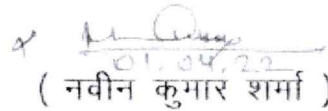 01.04.22
( नवीन कुमार शर्मा )